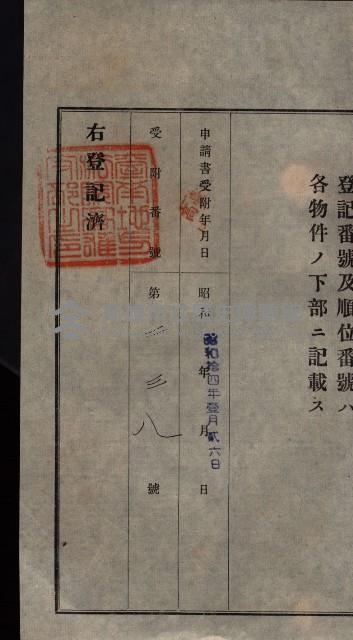 登記番號及順位番號ハ
各物件ノ下部ニ記載ス
申請書受附年月日
昭和 年 月 日
昭和拾四年壹月貳六日
受附番號
第 八 號
右登記濟